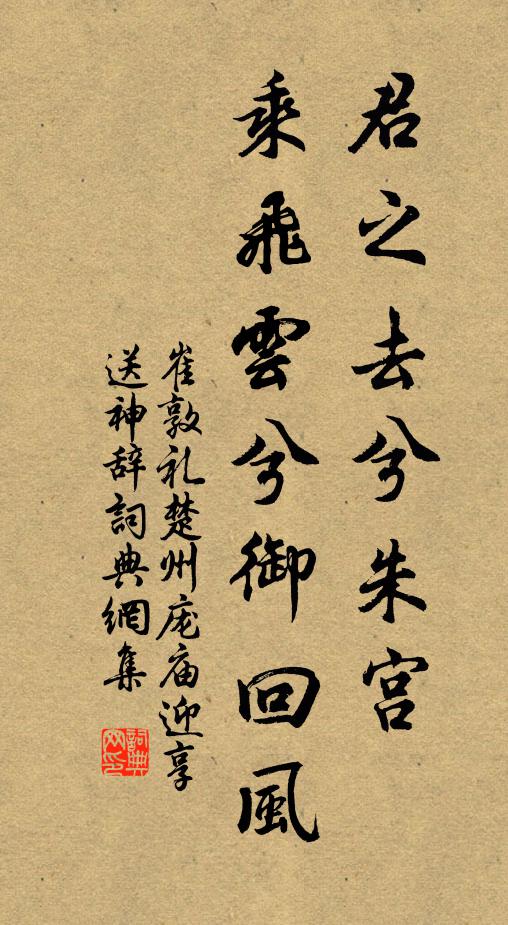 君之去兮朱宫
乘飛雲兮御回風
崔敦礼楚州庞庙迎享
送神辞詞典網集
詞典
网印